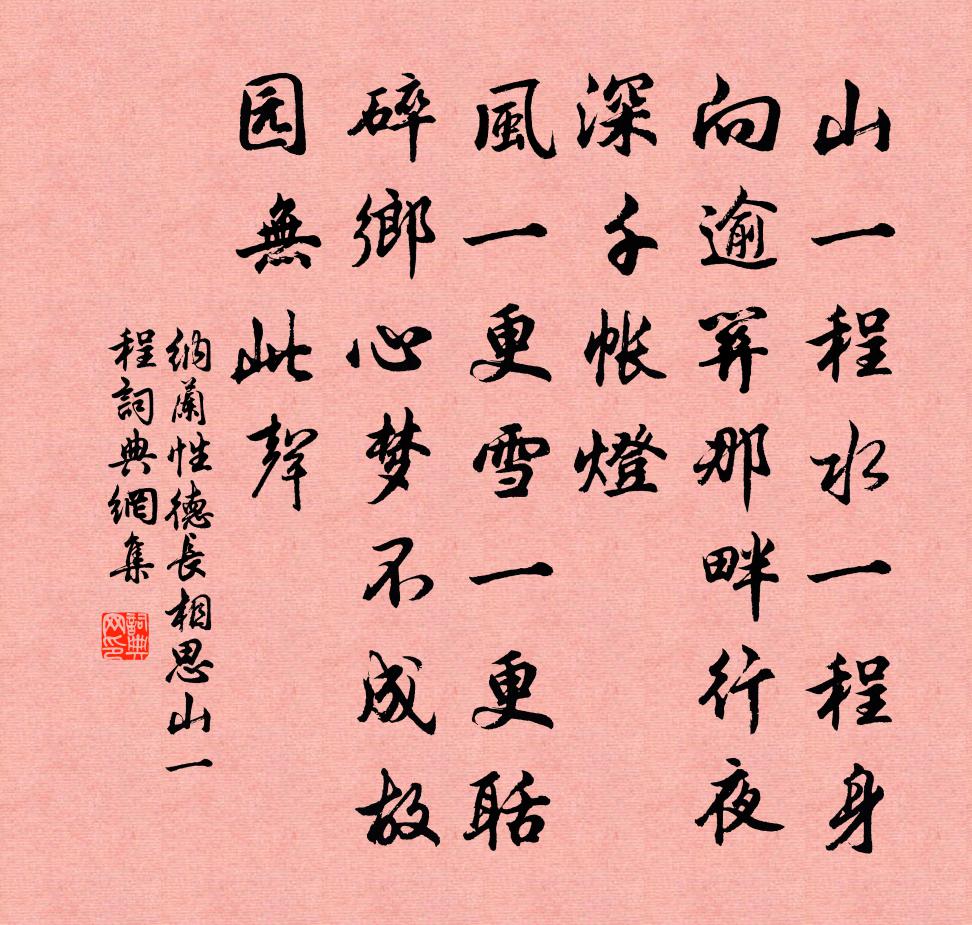 山一程水一程身
向逾關那畔行夜
深千帳燈
風一更雪一更聒
碎鄉心梦不成故
园無此聲
納蘭性德長相思山一
程詞典網集
詞典
网印